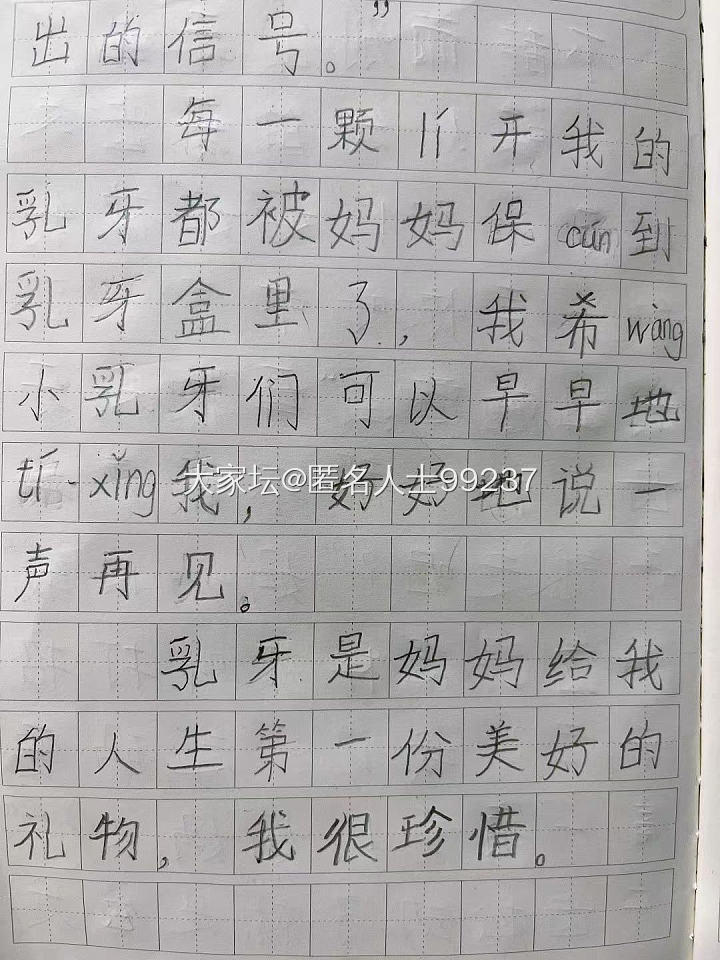 出的信号。”
每一颗lí开我的
乳牙都被妈妈保cún到
乳牙盒里了，我希wàng
小乳牙们可以早早地
tí·xǐng我，好好地说一
声再见。
乳牙是妈妈给我
的人生第一份美好的
礼物，我很珍惜。
大家坛@匿名人士99237